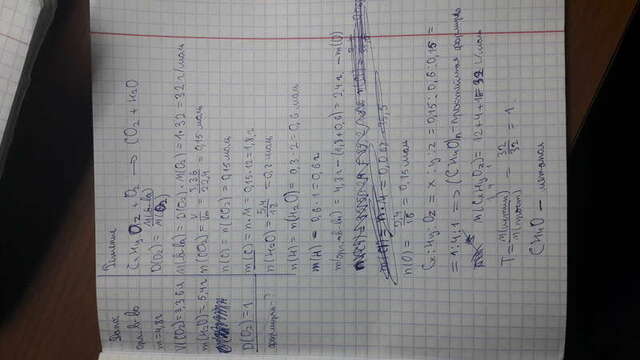 Дано:
орг. в-во
m=4,8г
V(CO2)=3,36л
m(H2O)=5,4г
D(O2)=1
формула-?
Решение
CxHyOz + O2 → CO2 + H2O
D(O2) = M(в-ва) / M(O2)
M(в-ва) = D(O2) · M(O2) = 1 · 32 = 32 г/моль
n(CO2) = V / Vm = 3,36 / 22,4 = 0,15 моль
n(C) = n(CO2) = 0,15 моль
m(C) = n · M = 0,15 · 12 = 1,8 г
n(H2O) = 5,4 / 18 = 0,3 моль
n(H) = n(H2O) = 0,3 · 2 = 0,6 моль
m(H) = 0,6 · 1 = 0,6 г
= 4,8г - (1,8 + 0,6) = 2,4 г - m(O)
n(O) = 2,4 / 16 = 0,15 моль
CxHyOz = x : y : z = 0,15 : 0,6 : 0,15 =
= 1 : 4 : 1 => (CH4O)n - простейшая формула
= 12 + 4 + 16 = 32 г/моль
= 32 / 32 = 1
CH4O - метанол